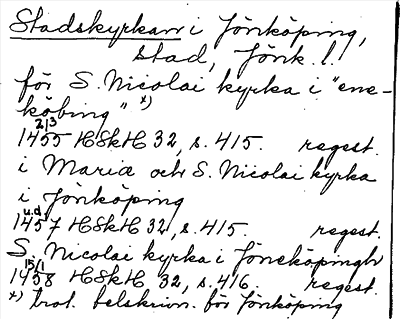 Stadskyrkan i Jönköping,
stad, Jönk. l.
för S. Nicolai kyrka i "ene-
köbing" x)
2/3
1455 HSkH 32, s. 415. regest.
i Maria och S. Nicolai kyrka
i Jönköping
u.d.
1457 HSkH 32, s. 415. regest.
S. Nicolai kyrka i Jöneköpingh
15/1
1458 HSkH 32, s. 416. regest.
x) trol. felskrivn. för Jönköping